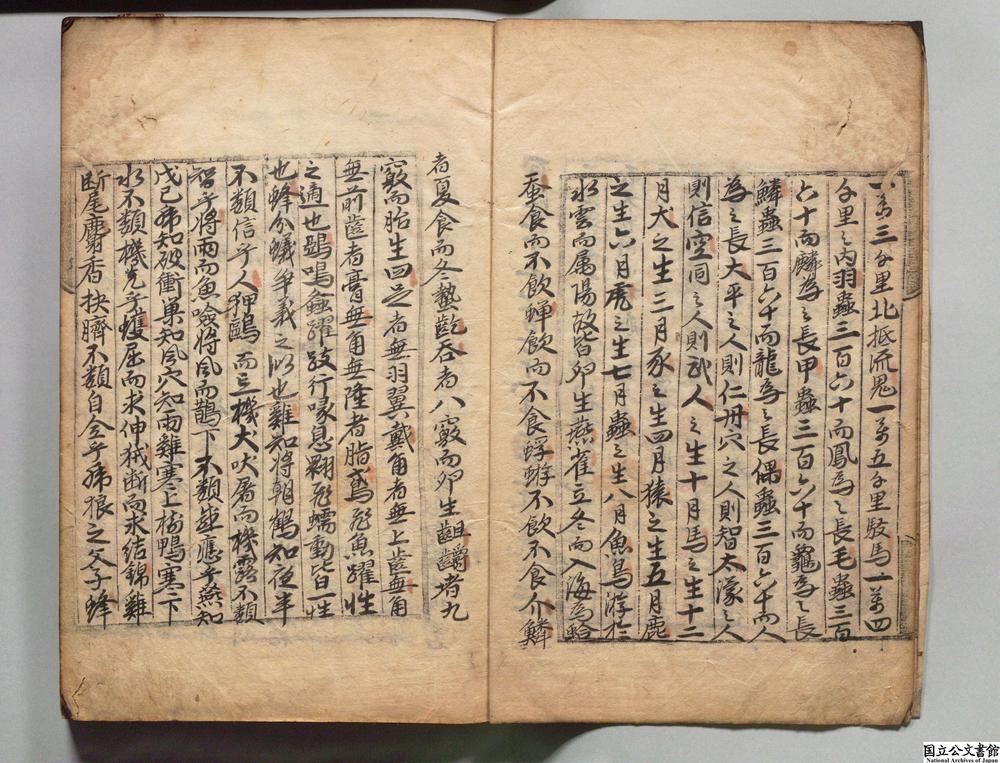 万三千里北抵流鬼一万五千里駮馬一万四
千里之内羽蟲三百六十而鳳為之長毛蟲三百
六十而麟為之長甲蟲三百六十而龜為之長
鱗蟲三百六十而龍為之長倮蟲三百六十而人
為之長大平之人則仁丹穴之人則智太濛之人
則信空同之人則武人之生十月馬之生十二
月犬之生三月豕之生四月猿之生五月鹿
之生六月虎之生七月蟲之生八月魚鳥游於
水雲而属陽故皆卵生燕雀立冬而入海為蛤
蚕食而不飲蟬飲而不食蜉蝣不飲不食介鱗
者夏食而冬蟄齕吞者八竅而卵生齟嚼者九
竅而胎生四足者無羽翼戴角者無上齒無角
無前齒者膏無角無後者脂鳶飛魚躍性
之適也鶪鳴螽躍跂行喙息翾飛蠕動皆一性
也蜂分蟻爭義之似也雞知將朝鶴知夜半
不類信乎人狎鷗而忘機犬吠屠而機露不類
智乎將雨而魚噞將風而鵲下不類感應乎燕知
戊己虎知破衝巢知風穴知雨雞寒上樹鴨寒下
水不類機先乎蠖屈而求伸蚓断而求結錦雞
断尾麝香抉臍不類自全乎虎狼之父子蜂
国立公文書館
National Archives of Japan